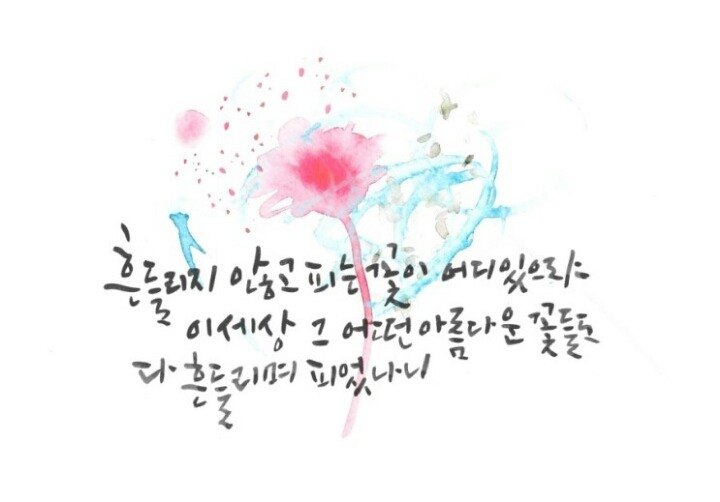 흔들리지 않고 피는 꽃이 어디있으랴
이세상 그 어떤 아름다운 꽃들도
다 흔들리며 피었나니